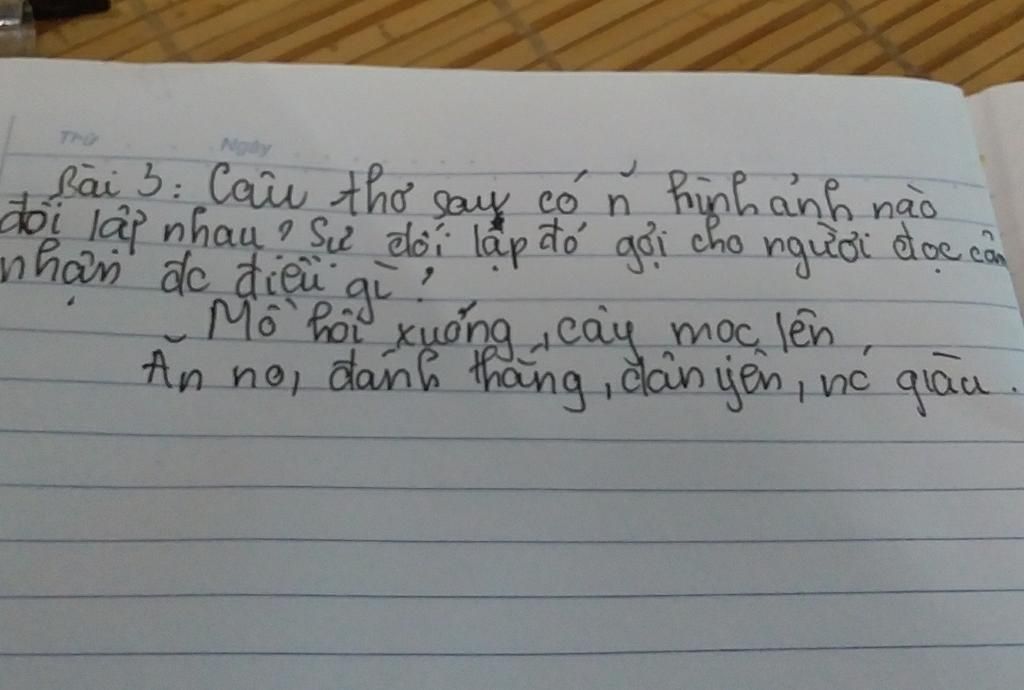 Thứ Ngày
Bài 3: Câu thơ sau có n~ hình ảnh nào
đối lập nhau? Sự đối lập đó gợi cho người đọc cảm
nhận đc điều gì?
Mồ hôi xuống, cây mọc lên
Ăn no, đánh thắng, dân yên, nc giàu.